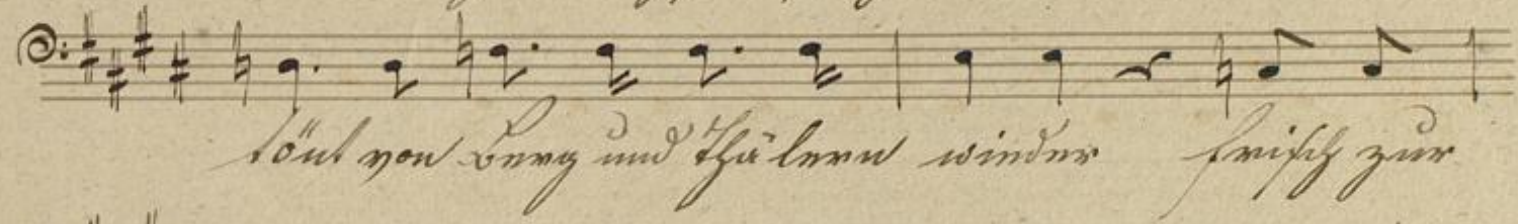 tönt von Berg und Thälern wieder frisch zur